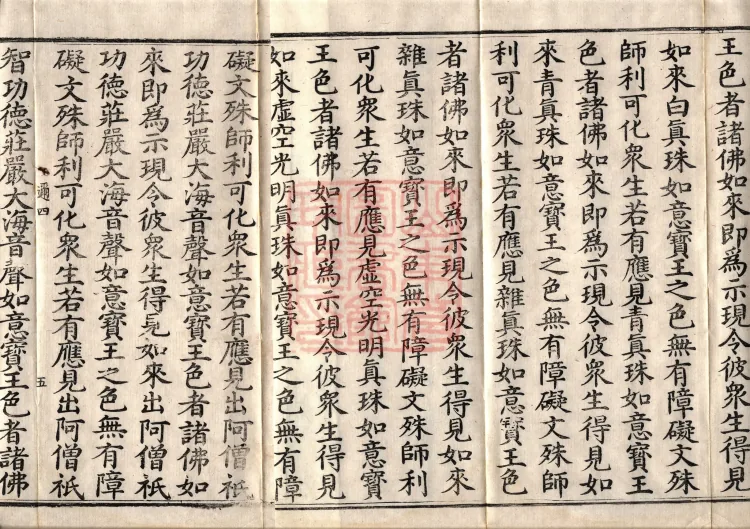 王色者諸佛如來即爲示現令彼衆生得見
如來白眞珠如意寶王之色無有障礙文殊
師利可化衆生若有應見青眞珠如意寶王
色者諸佛如來即爲示現令彼衆生得見如
來青眞珠如意寶王之色無有障礙文殊師
利可化衆生若有應見雜眞珠如意寶王色
者諸佛如來即爲示現令彼衆生得見如來
雜眞珠如意寶王之色無有障礙文殊師利
可化衆生若有應見虛空光明眞珠如意寶
王色者諸佛如來即爲示現令彼衆生得見
如來虛空光明眞珠如意寶王之色無有障
礙文殊師利可化衆生若有應見出阿僧祇
功德莊嚴大海音聲如意寶王色者諸佛如
來即爲示現令彼衆生得見如來出阿僧祇
功德莊嚴大海音聲如意寶王之色無有障
礙文殊師利可化衆生若有應見出阿僧祇
邇四 五
智功德莊嚴大海音聲如意寶王色者諸佛